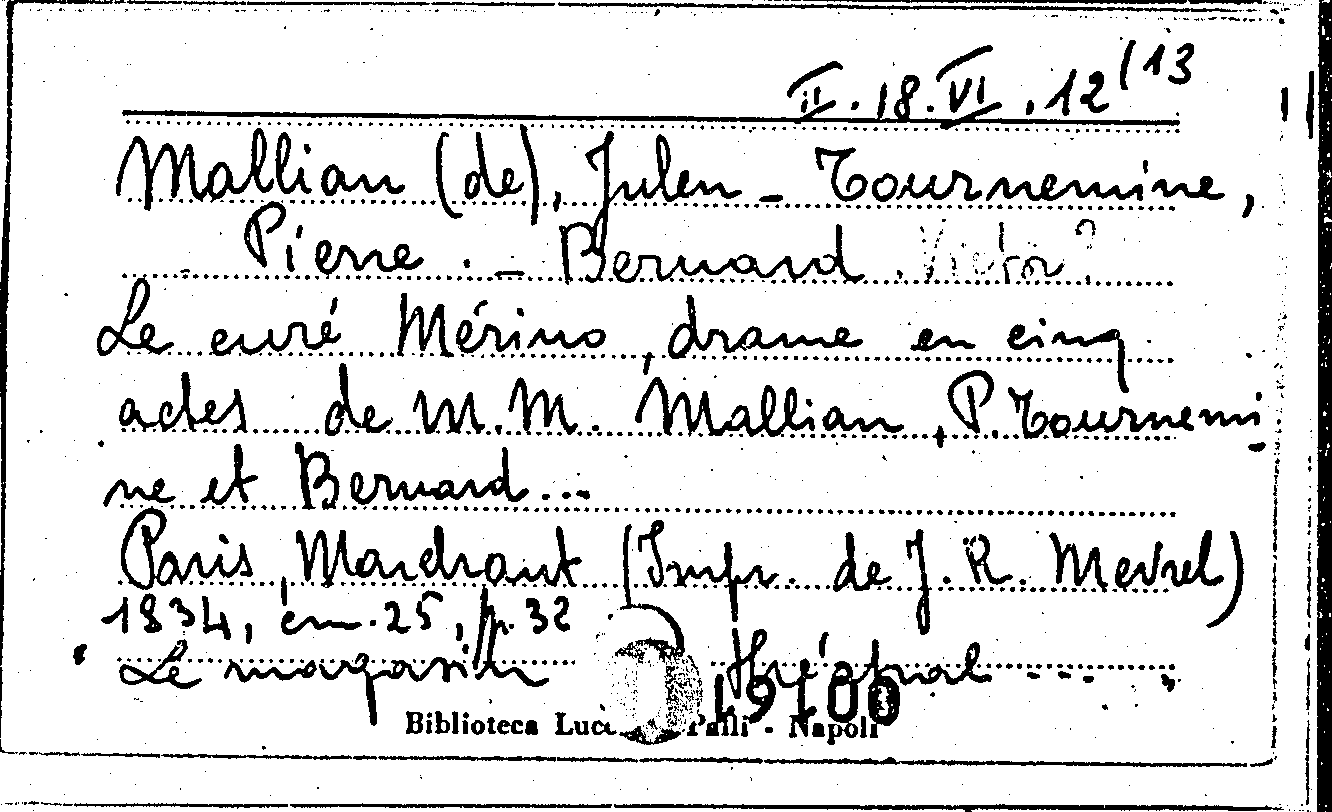 II.18.VI.12/13
Mallian (de), Julen - Tournemine,
Pierre. - Bernard. Victor?
Le curé Mérino, drame en cinq
actes de M.M. Mallian, P. Tournemi-
ne et Bernard...
Paris, Marchant (Impr. de J.R. Mevrel)
1834, cm. 25, p. 32
"Le magasin théatral ---- "
19100
Biblioteca Lucc Palli - Napoli